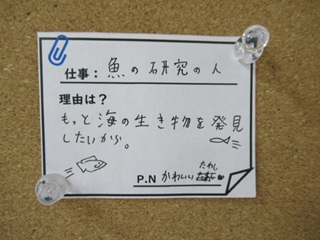 仕事：魚の研究の人
理由は？
もっと海の生き物を発見
したいから。
たわし
P.N かわいい